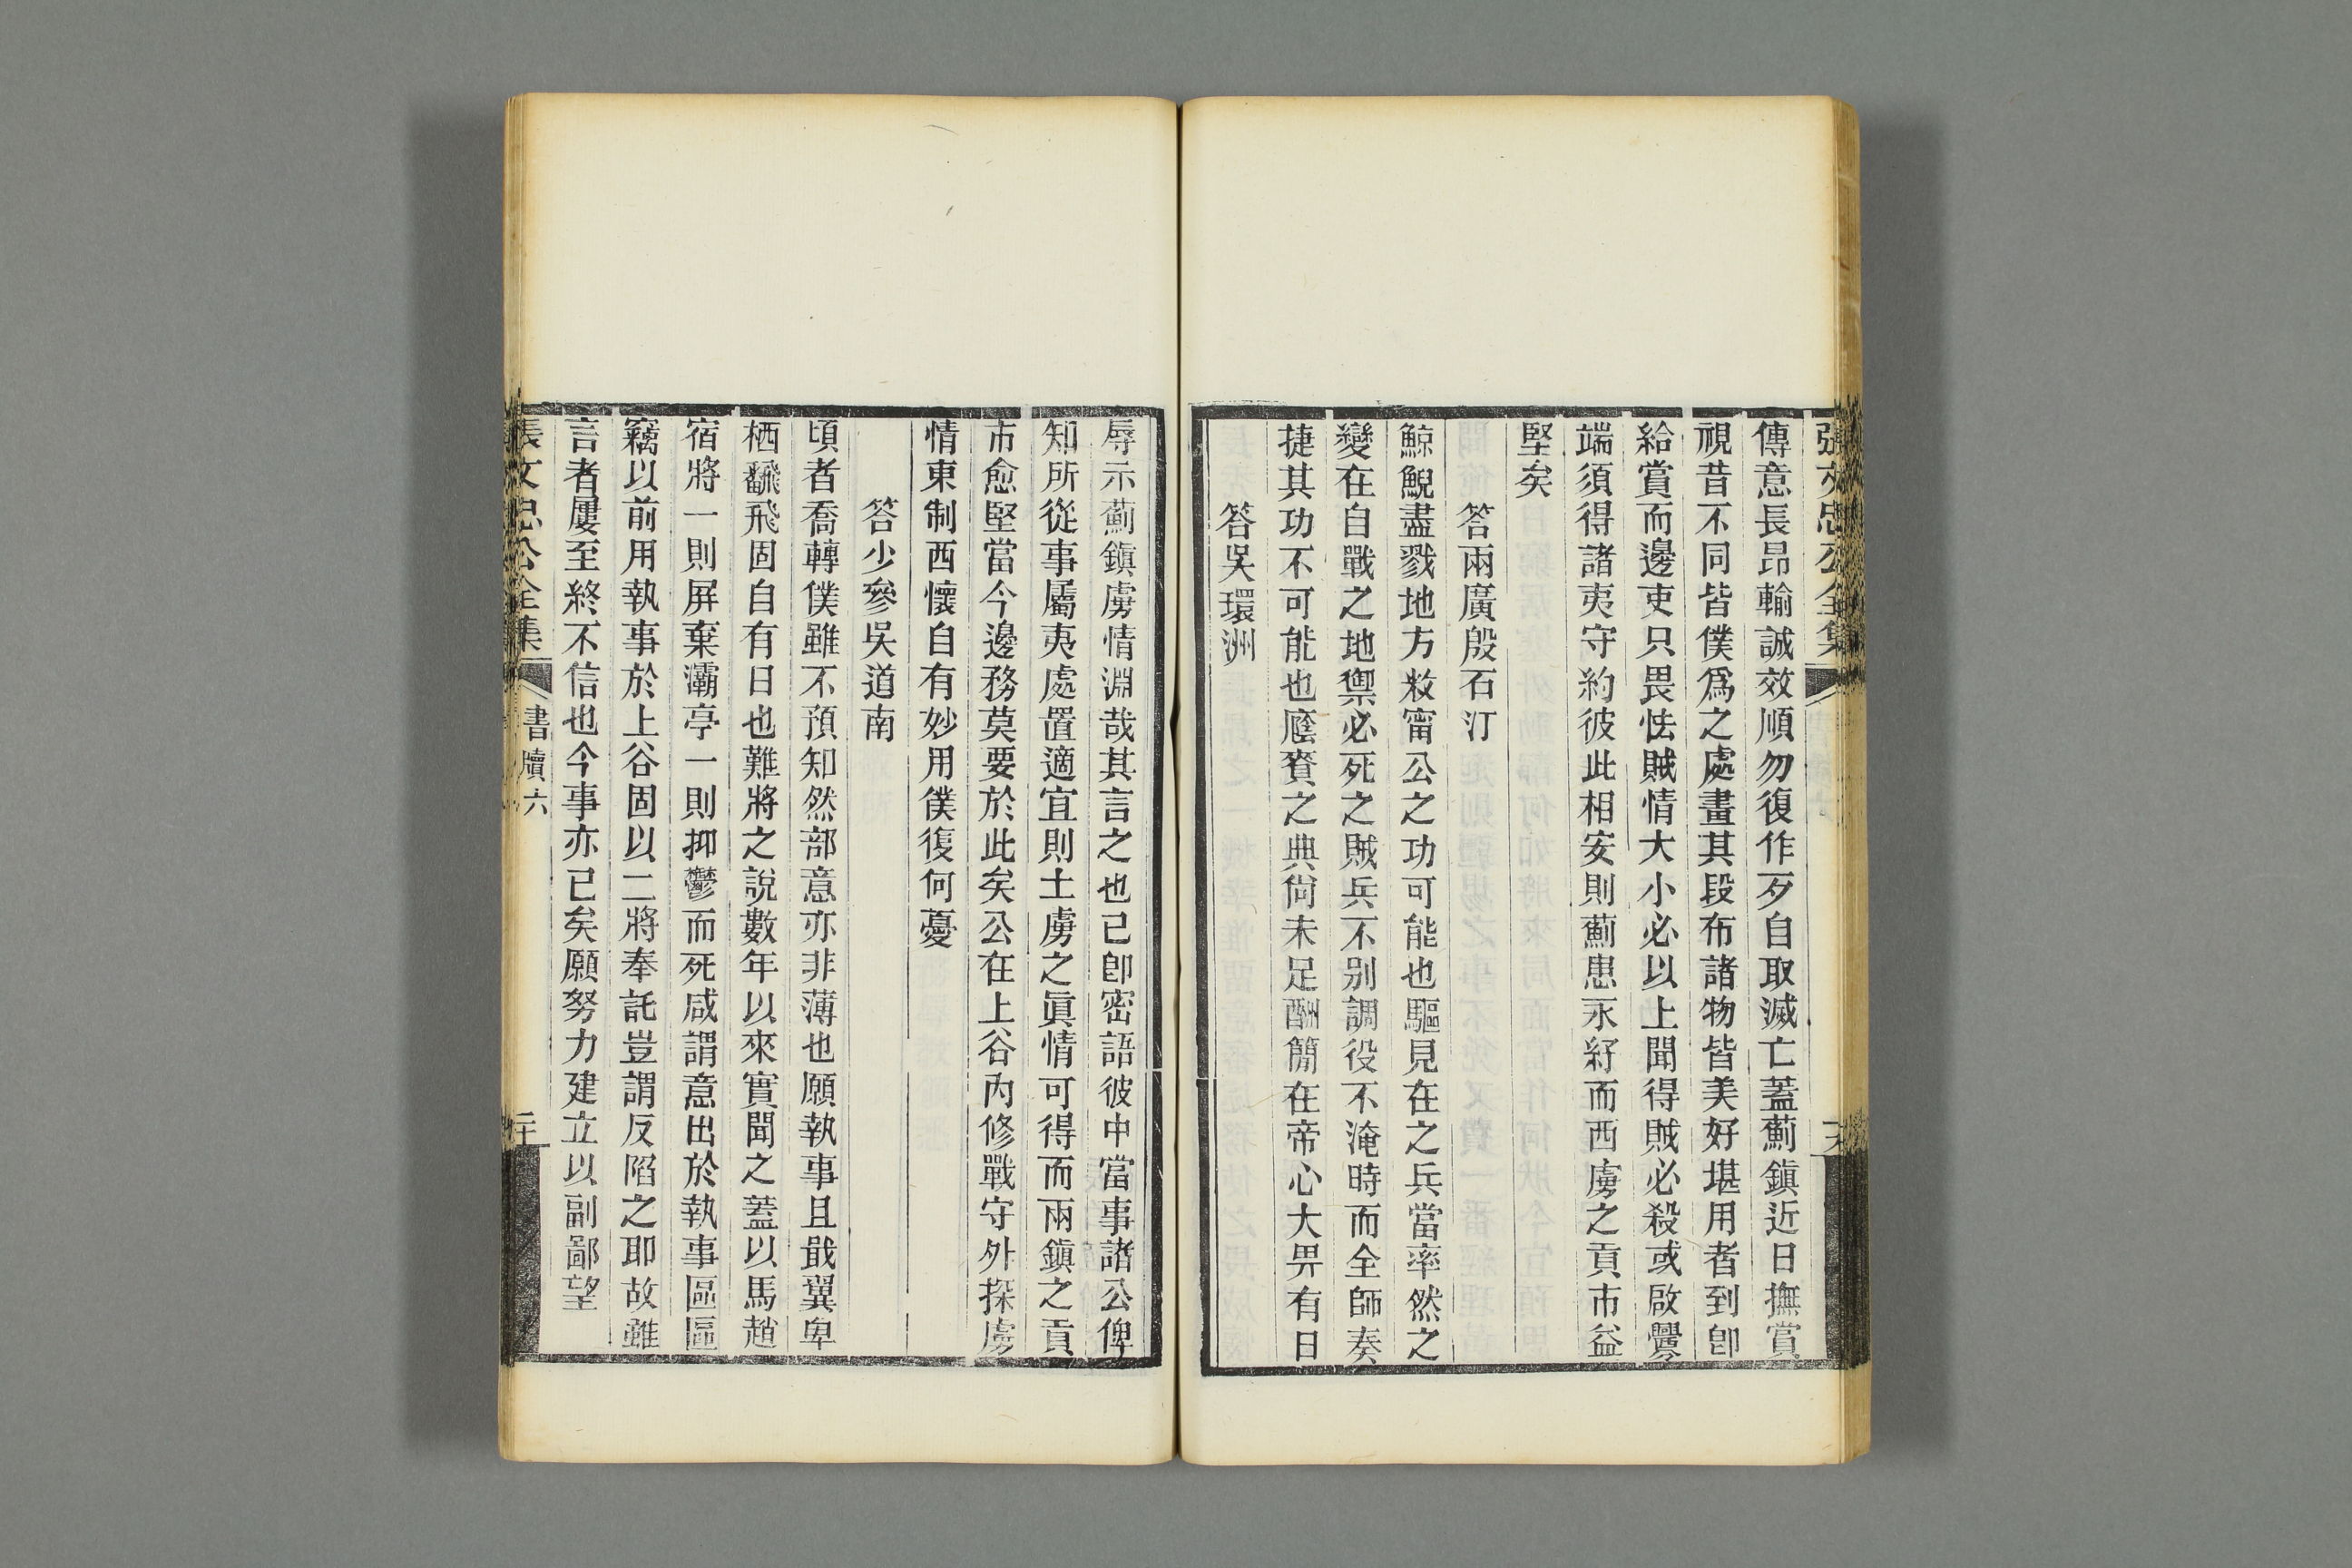 張文忠公全集
傳意長昂輸誠效順勿復作歹自取滅亡蓋薊鎭近日撫賞
視昔不同皆僕爲之處畫其段布諸物皆美好堪用者到卽
給賞而邊吏只畏怯賊情大小必以上聞得賊必殺或啟釁
端須得諸夷守約彼此相安則薊患永紓而西虜之貢市益
堅矣
答兩廣殷石汀
鯨鯢盡戮地方敉甯公之功可能也驅見在之兵當率然之
變在自戰之地禦必死之賊兵不別調役不淹時而全師奏
捷其功不可能也廕賚之典尙未足酬簡在帝心大畀有日
答吳環洲
辱示薊鎭虜情淵哉其言之也已卽密語彼中當事諸公俾
知所從事屬夷處置適宜則土虜之眞情可得而兩鎭之貢
市愈堅當今邊務莫要於此矣公在上谷內修戰守外探虜
情東制西懷自有妙用僕復何憂
答少參吳道南
頃者喬轉僕雖不預知然部意亦非薄也願執事且戢翼卑
栖翻飛固自有日也難將之說數年以來實聞之蓋以馬趙
宿將一則屏棄灞亭一則抑鬱而死咸謂意出於執事區區
竊以前用執事於上谷固以二將奉託豈謂反陷之耶故雖
言者屢至終不信也今事亦已矣願努力建立以副鄙望
張文忠公全集
書牘六
二十